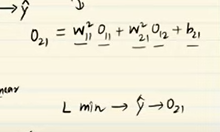 →ŷ
O₂₁ = w²₁₁ O₁₁ + w²₂₁ O₁₂ + b₂₁
near
L min → ŷ → O₂₁